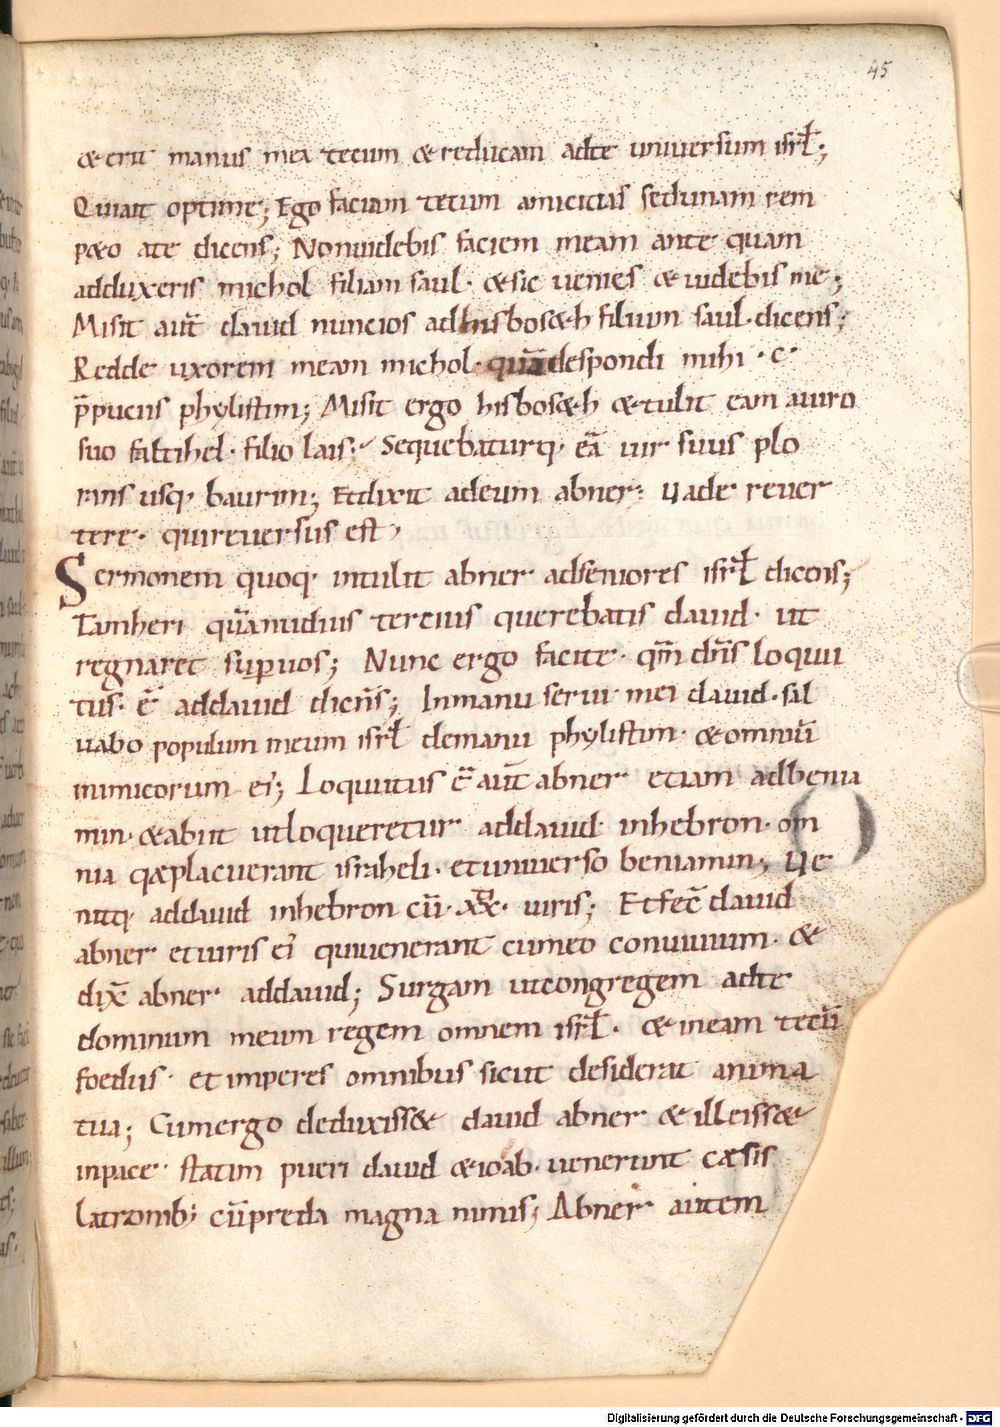 45
& erit manus mea tecum & reducam ad te uniuersum isrł;
Qui ait optime; Ego faciam tecum amicicias sed unam rem
p&o a te dicens; Non uidebis faciem meam ante quam
adduxeris michol filiam saul · & sic uenies & uidebis me;
Misit aut̄ dauid nuncios ad hisbos&h filium saul · dicens;
Redde uxorem meam michol · quā despondi mihi · c ·
p̄puciis phylistim; Misit ergo hisbos&h & tulit eam a uiro
suo faltihel · filio lais · Sequebaturq· eā uir suus plo
rans usq· baurim; Et dixit ad eum abner · Uade reuer
tere · qui reuersus est
Sermonem quoq· intulit abner ad seniores isrł dicens;
Tam heri quā nudius tercius querebatis dauid · ut
regnaret sup uos; Nunc ergo facite · qm̄ dn̄s loquu
tus · ē ad dauid dicn̄s; In manu serui mei dauid · sal
uabo populum meum isrł de manu phylistim · & omniū
inimicorum ei'; Loquutus ē aut̄ abner etiam ad benia
min · & abiit ut loqueretur ad dauid in hebron · om
nia quæ placuerant israheli · et uniuerso beniamin; Ue
nitq· ad dauid in hebron cū · xx · uiris; Et fec̄ dauid
abner et uiris ei' qui uenerant cum eo conuiuium · &
dix̄ abner · ad dauid; Surgam ut congregem ad te
dominum meum regem omnem isrł · & ineam tecū
foedus · et imperes omnibus sicut desiderat anima
tua; Cum ergo deduxiss& dauid abner & ille iss&
in pace · statim pueri dauid & ioab · uenerunt cæsis
latronib; cū preda magna nimis; Abner autem
Digitalisierung gefördert durch die Deutsche Forschungsgemeinschaft - DFG